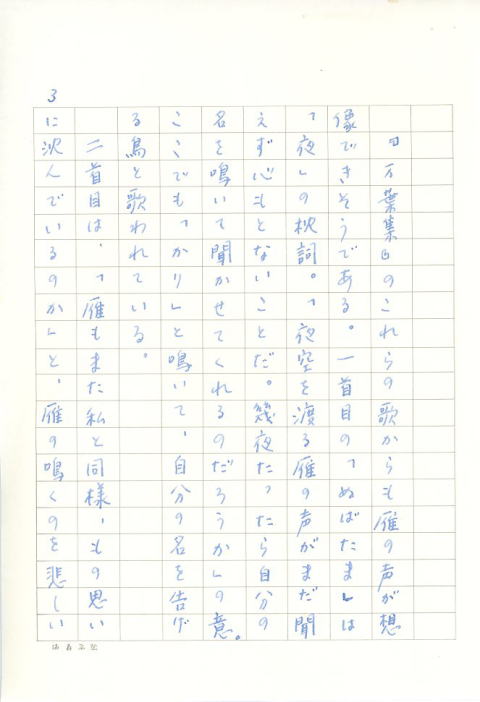 3
『万葉集』のこれらの歌からも雁の声が想
像できそうである。一首目の「ぬばたま」は
「夜」の枕詞。「夜空を渡る雁の声がまだ聞
えず心もとないことだ。幾夜たったら自分の
名を鳴いて聞かせてくれるのだろうか」の意。
ここでも「かり」と鳴いて、自分の名を告げ
る鳥と歌われている。
二首目は、「雁もまた私と同様、もの思い
に沈んでいるのか」と、雁の鳴くのを悲しい